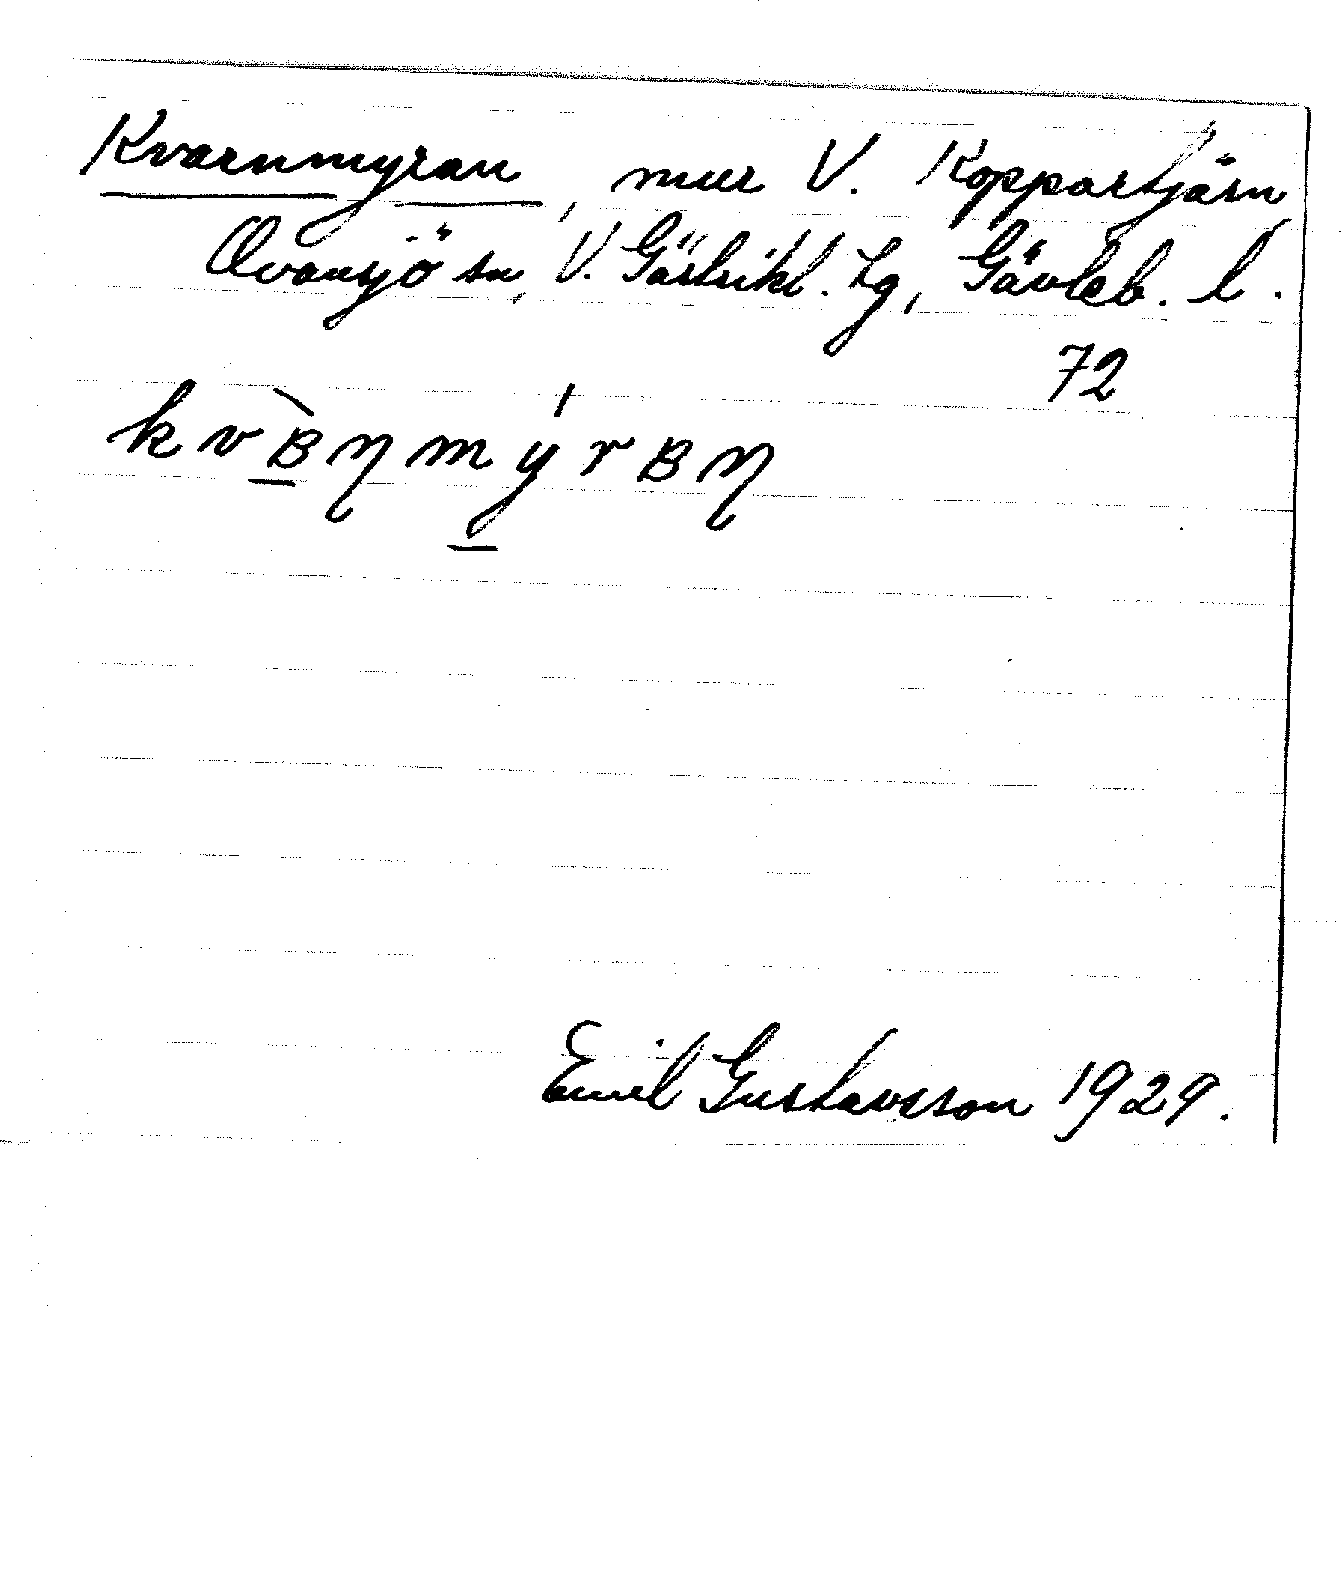 Kvarnmyran, mur V. Koppartjärn
Ovansjö sn, V. Gästrikl. tg, Gävleb. l.
72
kvʙ̲̀ɳmý̲rʙɳ
Emil Gustavsson 1929.